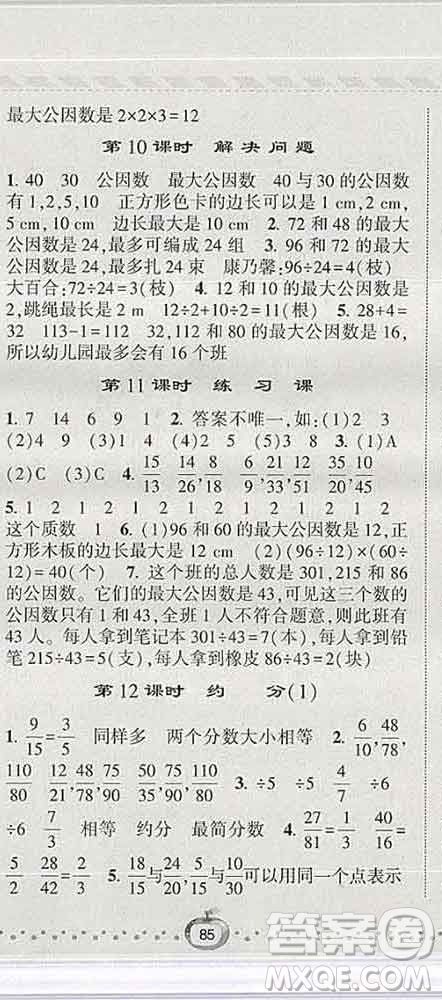 最大公因数是 2×2×3=12
第 10 课时 解 决 问 题
1. 40 30 公因数 最大公因数 40 与 30 的公因数
有 1,2,5,10 正方形色卡的边长可以是 1 cm,2 cm,
5 cm,10 cm 边长最大是 10 cm 2. 72 和 48 的最大
公因数是 24,最多可编成 24 组 3. 96 和 72 的最大
公因数是 24,最多扎 24 束 康乃馨:96÷24=4(枝)
大百合:72÷24=3(枝) 4. 12 和 10 的最大公因数
是 2,跳绳最长是 2 m 12÷2+10÷2=11(根) 5. 28+4=
32 113-1=112 112 和 80 的最大公因数是 16,
所以幼儿园最多会有 16 个班
第 11 课时 练 习 课
1. 7 14 6 9 1 2. 答案不唯一,如:(1)2 3
(2)4 9 (3)2 4 (4)2 (5)5 8 3. (1)A
(2)C (3)C 4. 15/13 14/26,8/14 6/21,9/30,12/33 10/51,20/31,30/11
5. 1 2 1 2 1 2 1 2 1 2 1 2 1 2
这个质数 1 6. (1)96 和 60 的最大公因数是 12,正
方形木板的边长最大是 12 cm (2) (96÷12)×(60÷
12)=40(块) 7. 这个班的总人数是 301,215 和 86
的公因数。它们的最大公因数是 43,可见这三个数的
公因数只有 1 和 43,全班 1 人不符合题意,则此班有
43 人。每人拿到笔记本 301÷43=7(本),每人拿到铅
笔 215÷43=5(支),每人拿到橡皮 86÷43=2(块)
第 12 课时 约 分(1)
1. 9/15=3/5 同样多 两个分数大小相等 2. 6/10,48/78,
110/80 12/21,50/75,80/90 3. ÷5 ÷5 4/7 ÷6
÷6 7/3 相等 约分 最简分数 4. 27/81=1/3 40/16=
5/2 28/42=2/3 5. 18/15与12/10,5/15与10/30可以用同一个点表示
85
答案圈